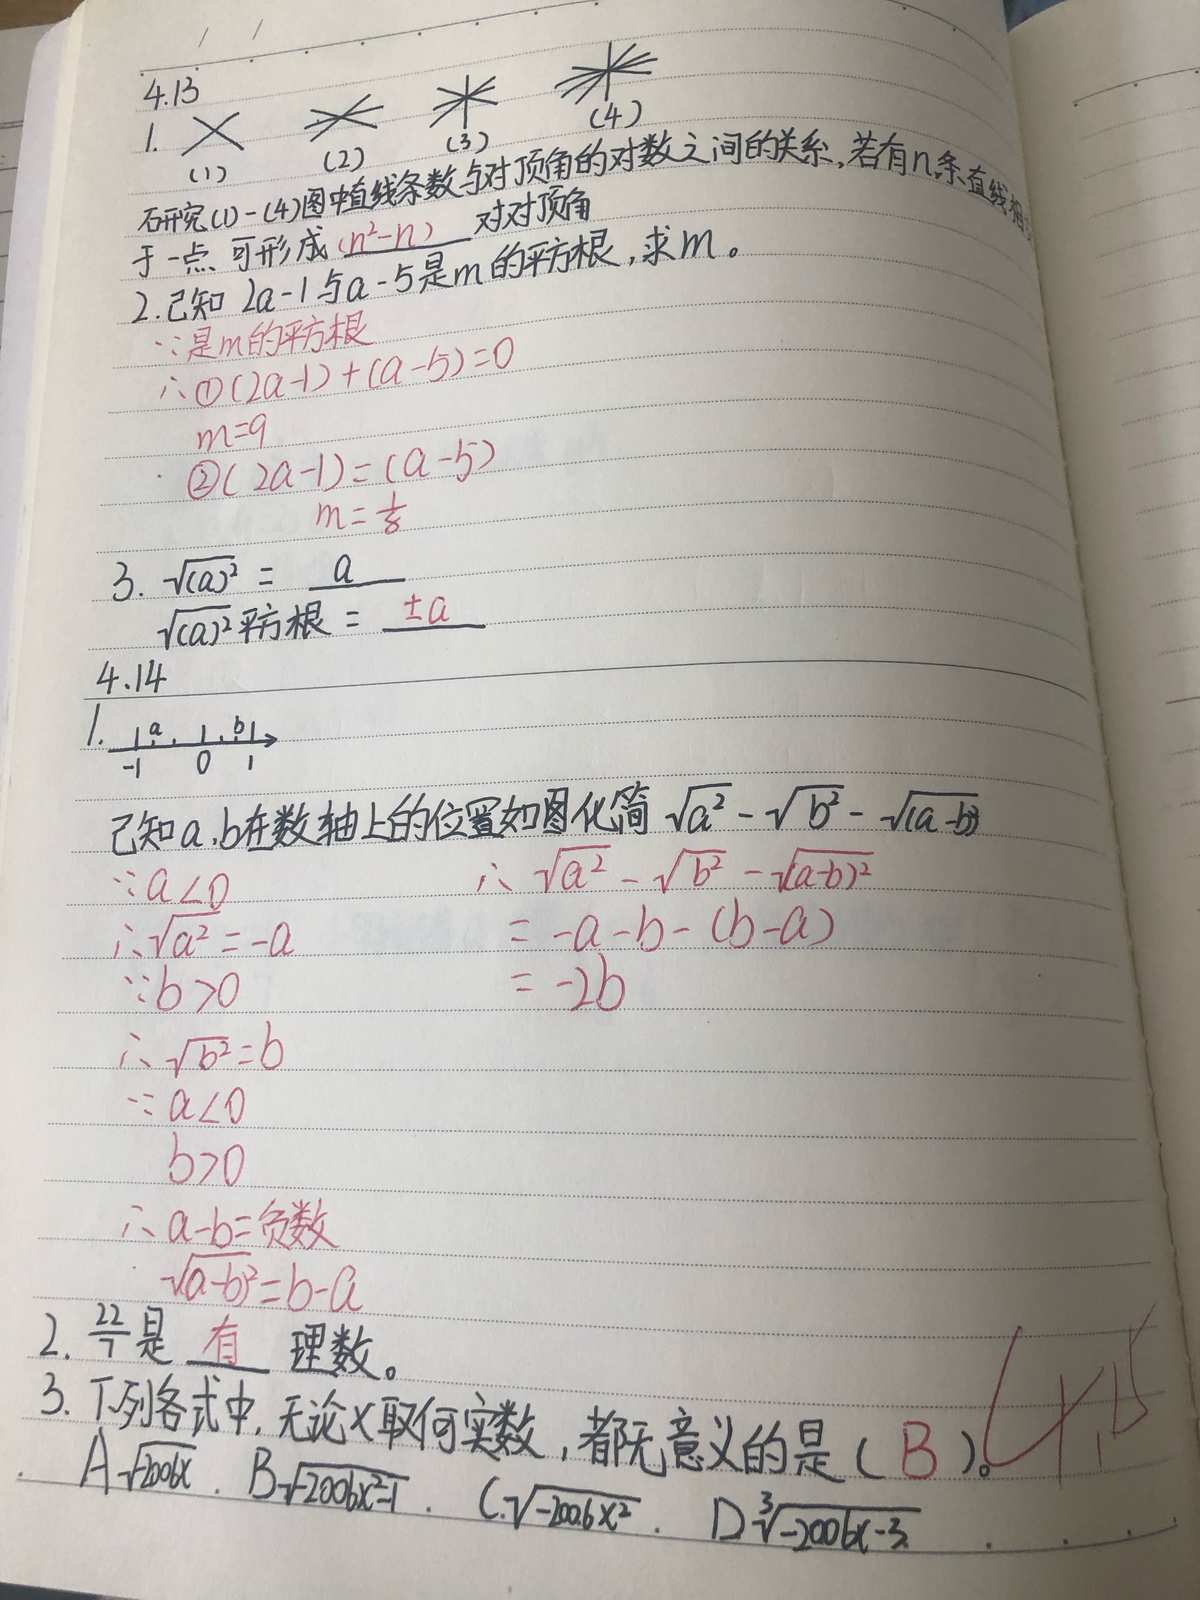 4.13
1.
(1) (2) (3) (4)
研究(1)-(4)图中直线条数与对顶角的对数之间的关系,若有n条直线相
于一点 可形成 (n²-n) 对对顶角
2.已知 2a-1与a-5是m的平方根,求m。
∵是m的平方根
∴①(2a-1)+(a-5)=0
m=9
②(2a-1)=(a-5)
m=
3. √(a)² = a
√(a)²平方根 = ±a
4.14
1. a b
-1 0 1
已知a,b在数轴上的位置如图化简 √a² - √b² - √(a-b)²
∵a<0 ∴ √a² - √b² - √(a-b)²
∴√a² = -a = -a-b-(b-a)
∵b>0 = -2b
∴√b²=b
∵a<0
b>0
∴a-b=负数
√(a-b)²=b-a
2. 22/7 是 有 理数。
3. 下列各式中,无论x取何实数,都无意义的是(B)。
A√-2006x . B√-2006x²-1 . C.√-2006x² . D ³√-2006x-3
4.15